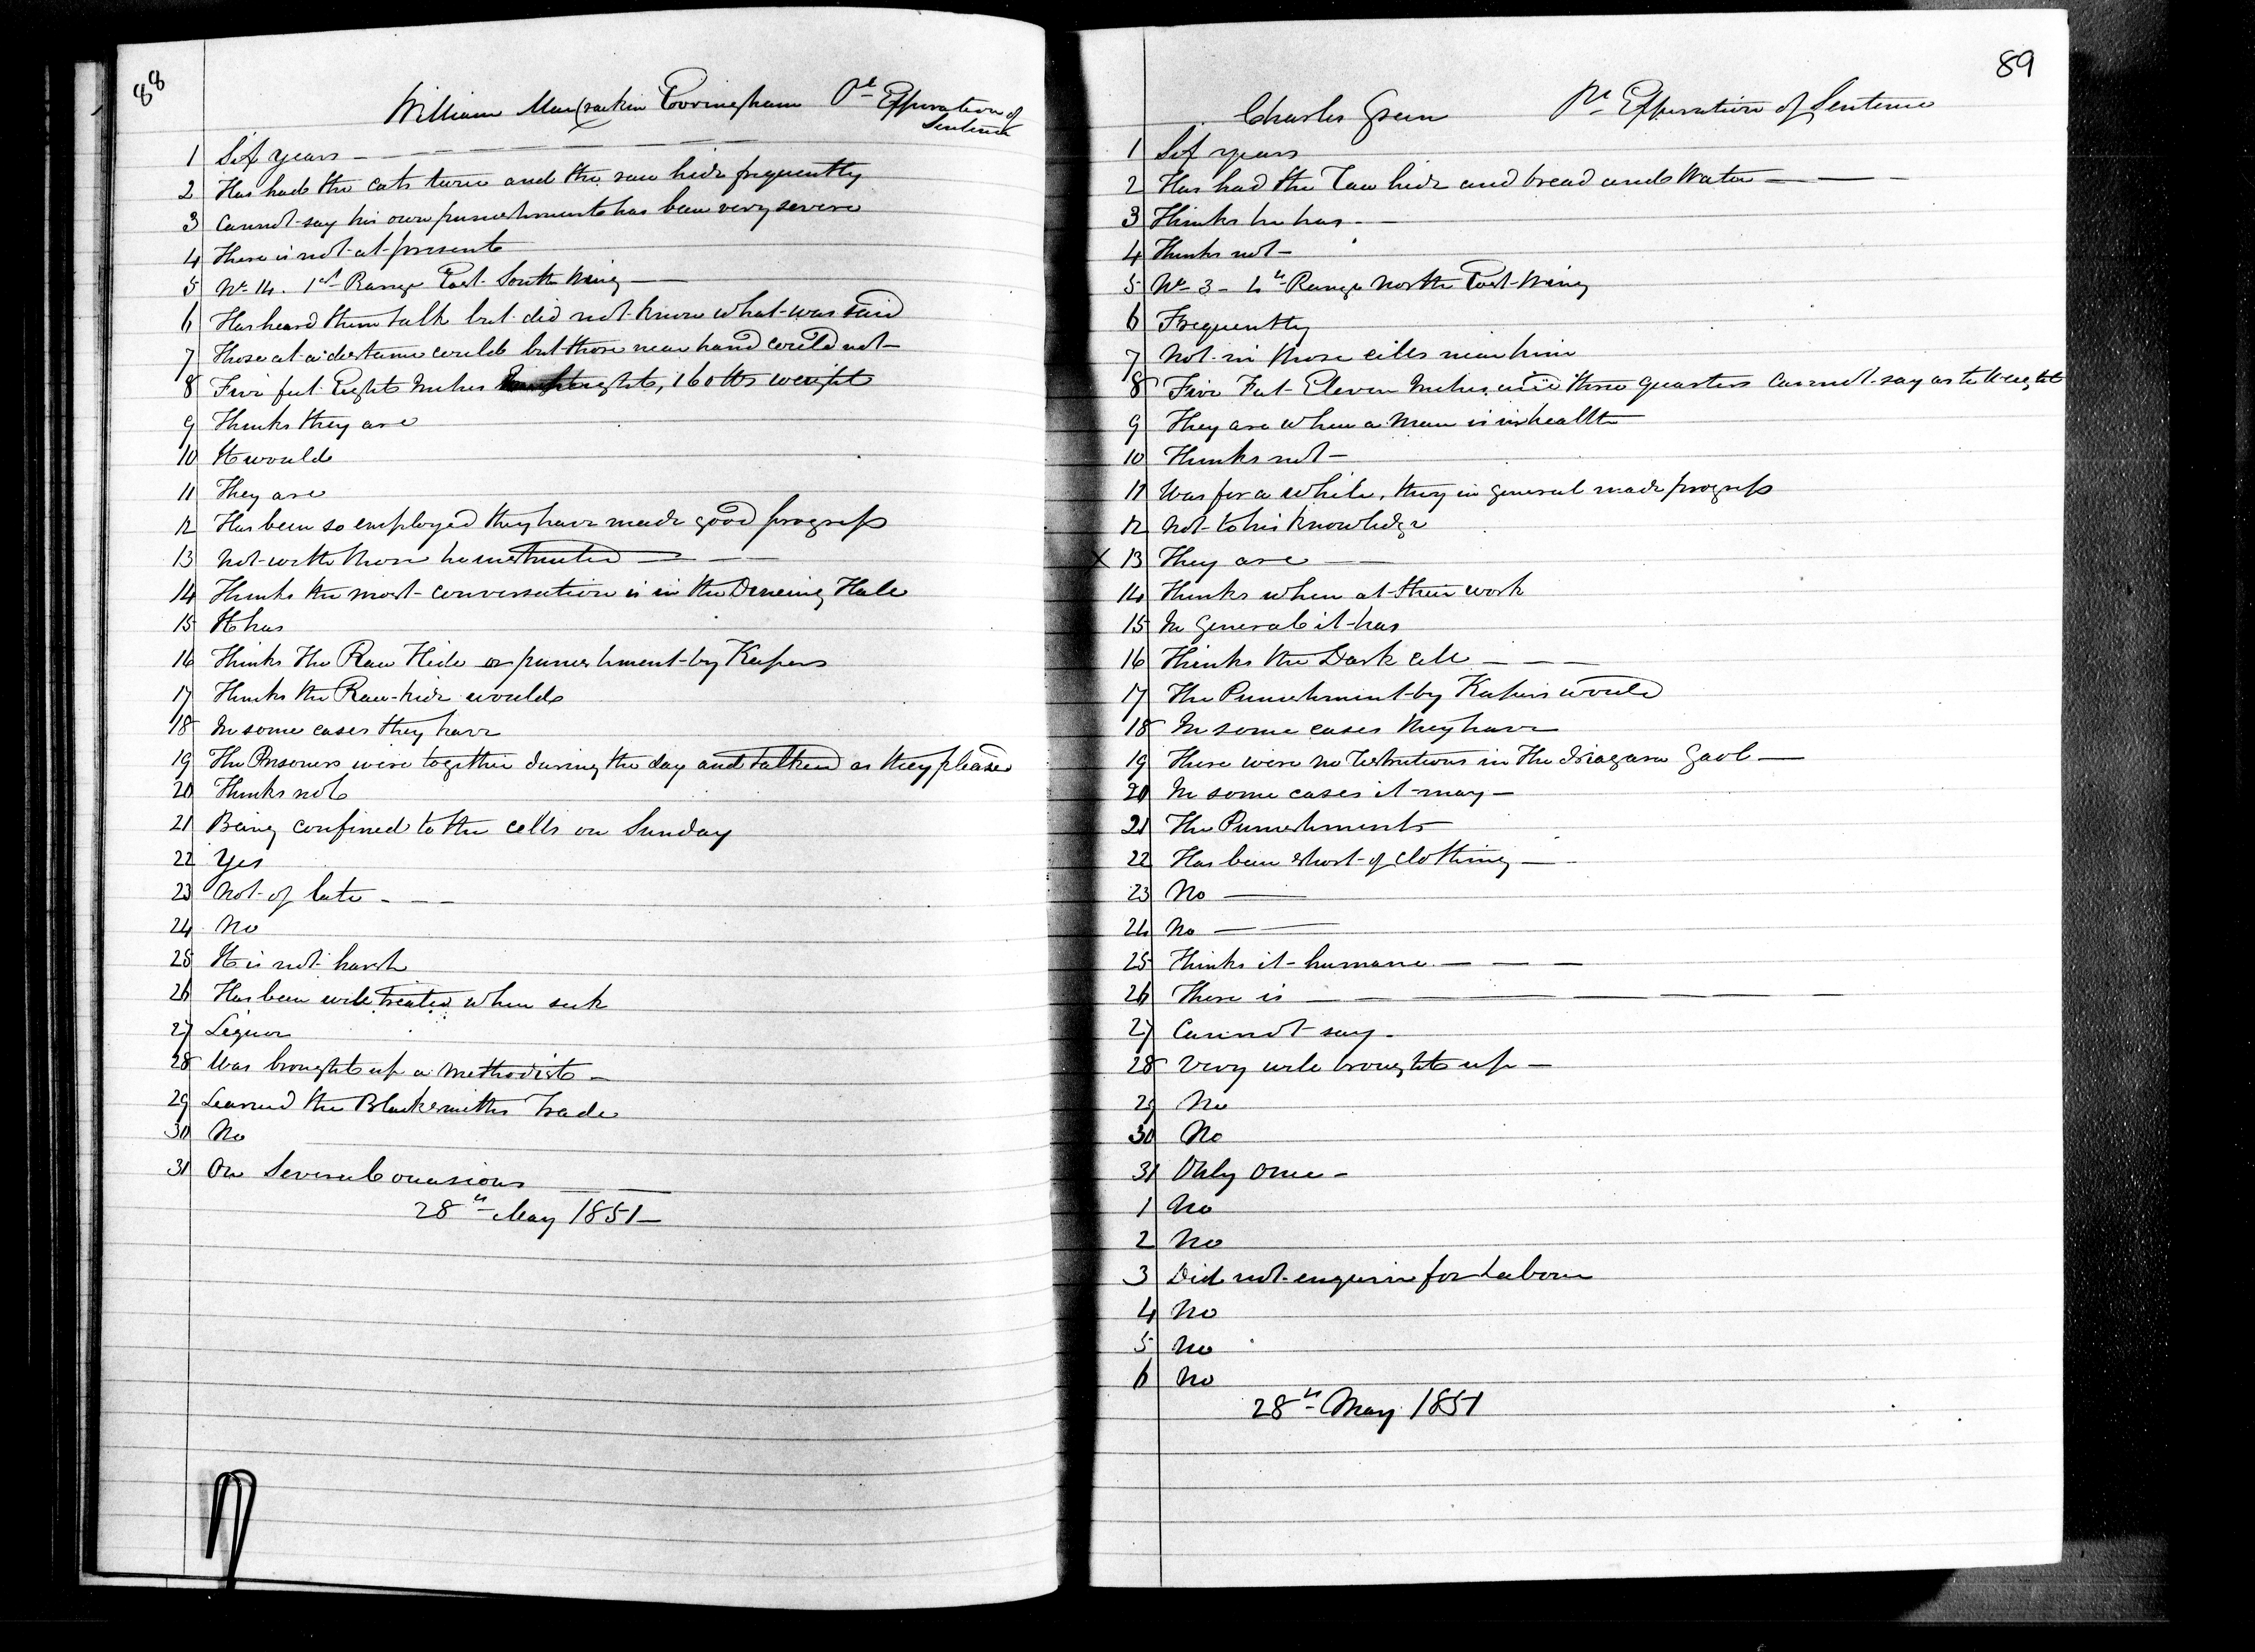 88
William MacCrackin Covringham Pr Expiration of
Sentence
1 Six years
2 Has had the cats twice and the raw hide frequently
3 Cannot say his own punishments has been very severe
4 There is not at present
5 No 14. 1st Range East South Wing
6 Has heard them talk but did not know what was said
7 Those at a distance could but those near hand could not
8 Five feet Eight Inches height, 160 lbs weight
9 Thinks they are
10 It would
11 They are
12 Has been so employed they have made good progress
13 Not with those he instructed
14 Thinks the most conversation is in the Dineing Hall
15 It has
16 Thinks The Raw Hide or punishment by Keepers
17 Thinks the Raw-hide would
18 In some cases they have
19 The Prisoners were together during the day and talked as they pleased
20 Thinks not
21 Being confined to the cells on Sunday
22 Yes
23 Not of late
24 No
25 It is not harsh
26 Has been well treated when sick
27 Liquor
28 Was brought up a Methodist
29 Learned the Blacksmiths Trade
30 No
31 On Several occasions
28th May 1851
89
Charles Green Pr Expiration of Sentence
1 Six years
2 Has had the Raw hide and bread and Water
3 Thinks he has
4 Thinks not
5 No 3 - 4th Range North East Wing
6 Frequently
7 Not in those cells near him
8 Five Feet Eleven Inches and three quarters Cannot say as to Weight
9 They are when a Man is in health
10 Thinks not
11 Was for a while, they in general made progress
12 Not to his knowledge
X 13 They are
14 Thinks when at their work
15 In General it has
16 Thinks the Dark cell
17 The Punishment by Keepers would
18 In some cases they have
19 There were no restrictions in The Niagara Gaol
20 In some cases it may
21 The Punishments
22 Has been short of clothing
23 No
24 No
25 Thinks it humane
26 There is
27 Cannot say
28 Very well brought up
29 No
30 No
31 Only once
1 No
2 No
3 Did not enquire for Labour
4 No
5 No
6 No
28th May 1851